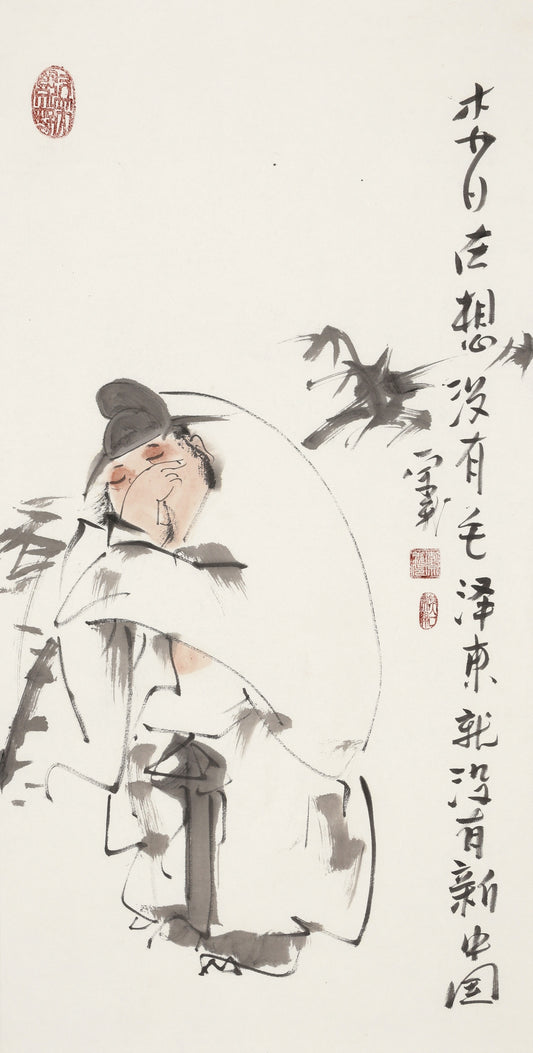 李白在想没有毛泽东就没有新中国